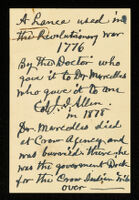 A Lance used in
the Revolutionary war
1776
By the Doctor who
gave it to Dr Marcelles
who gave it to me
Col J. D. Allen.
in 1878
Dr. Marcelles died
at Crow Agency, and
was burried there he
was the government Doct
for the Crow Indian Tribe
over